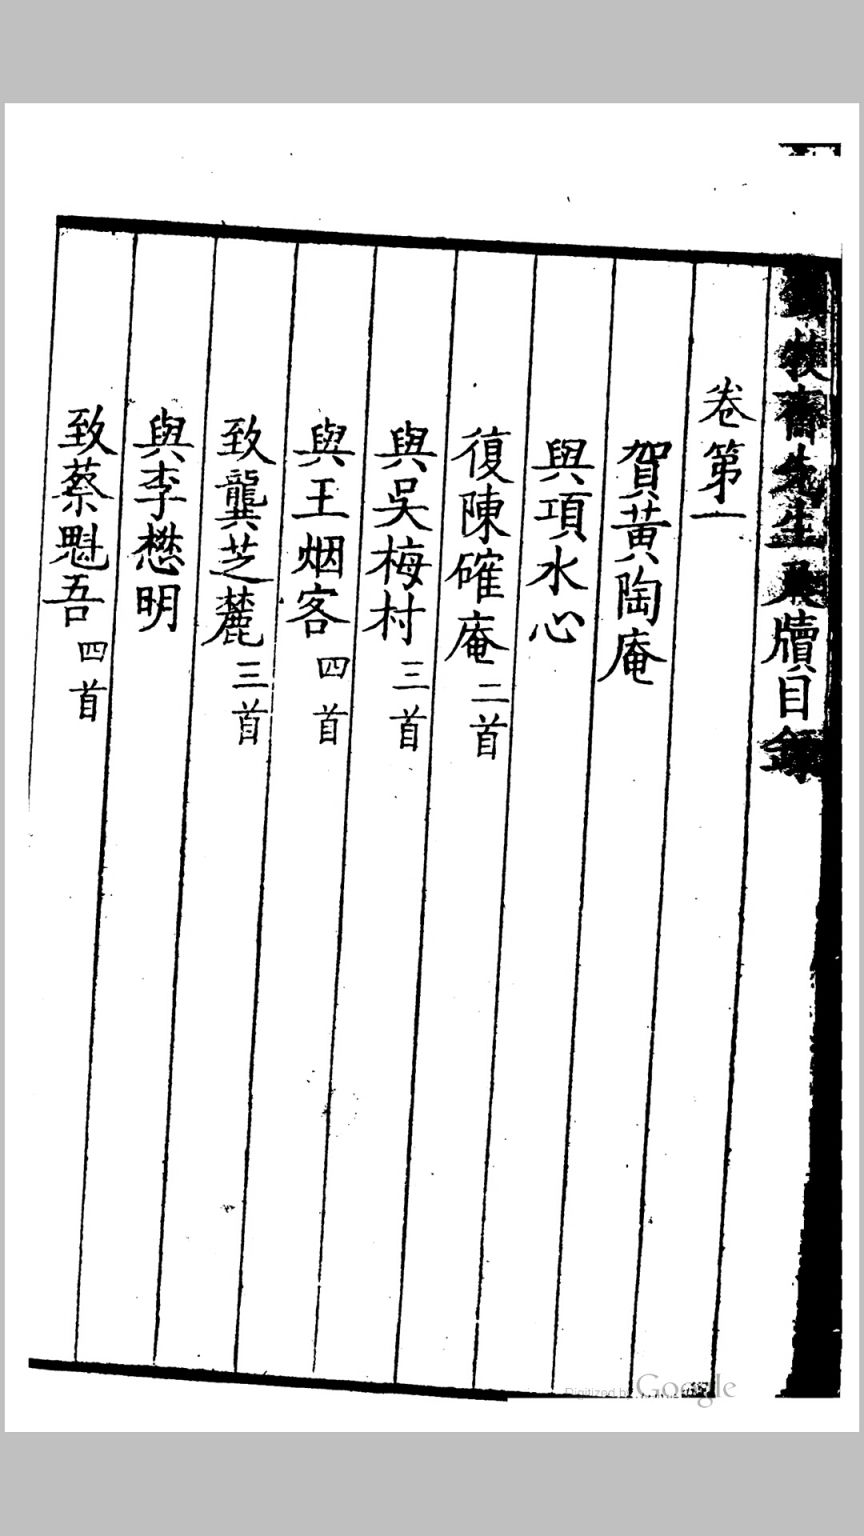 錢牧齋先生尺牘目錄
卷第一
賀黃陶庵
與項水心
復陳確庵二首
與吳梅村三首
與王烟客四首
致龔芝麓三首
與李懋明
致蔡魁吾四首
Digitized by Google